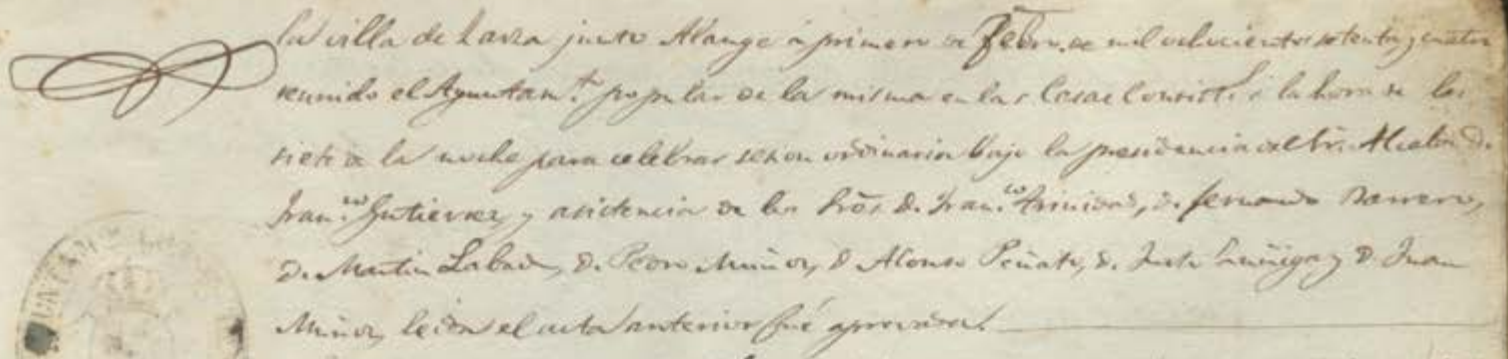 la villa de Zarza junto Alange á primero de Febro. de mil ochocientos setenta y cuatro
reunido el Ayuntamto. popular de la misma en las Casas Consistls. á la hora de las
siete de la noche para celebrar sesion ordinaria bajo la presidencia del Sr. Alcalde D.
Franco. Gutierrez, y asistencia de los Sres. D. Franco. Trinidad, D. Fernando Barrero,
D. Martin Labado, D. Pedro Muñoz, D Alonso Peñato, D. Justo Zuñiga y D Juan
Muñoz, leida el acta anterior fué aprovada.
AYUNTAM